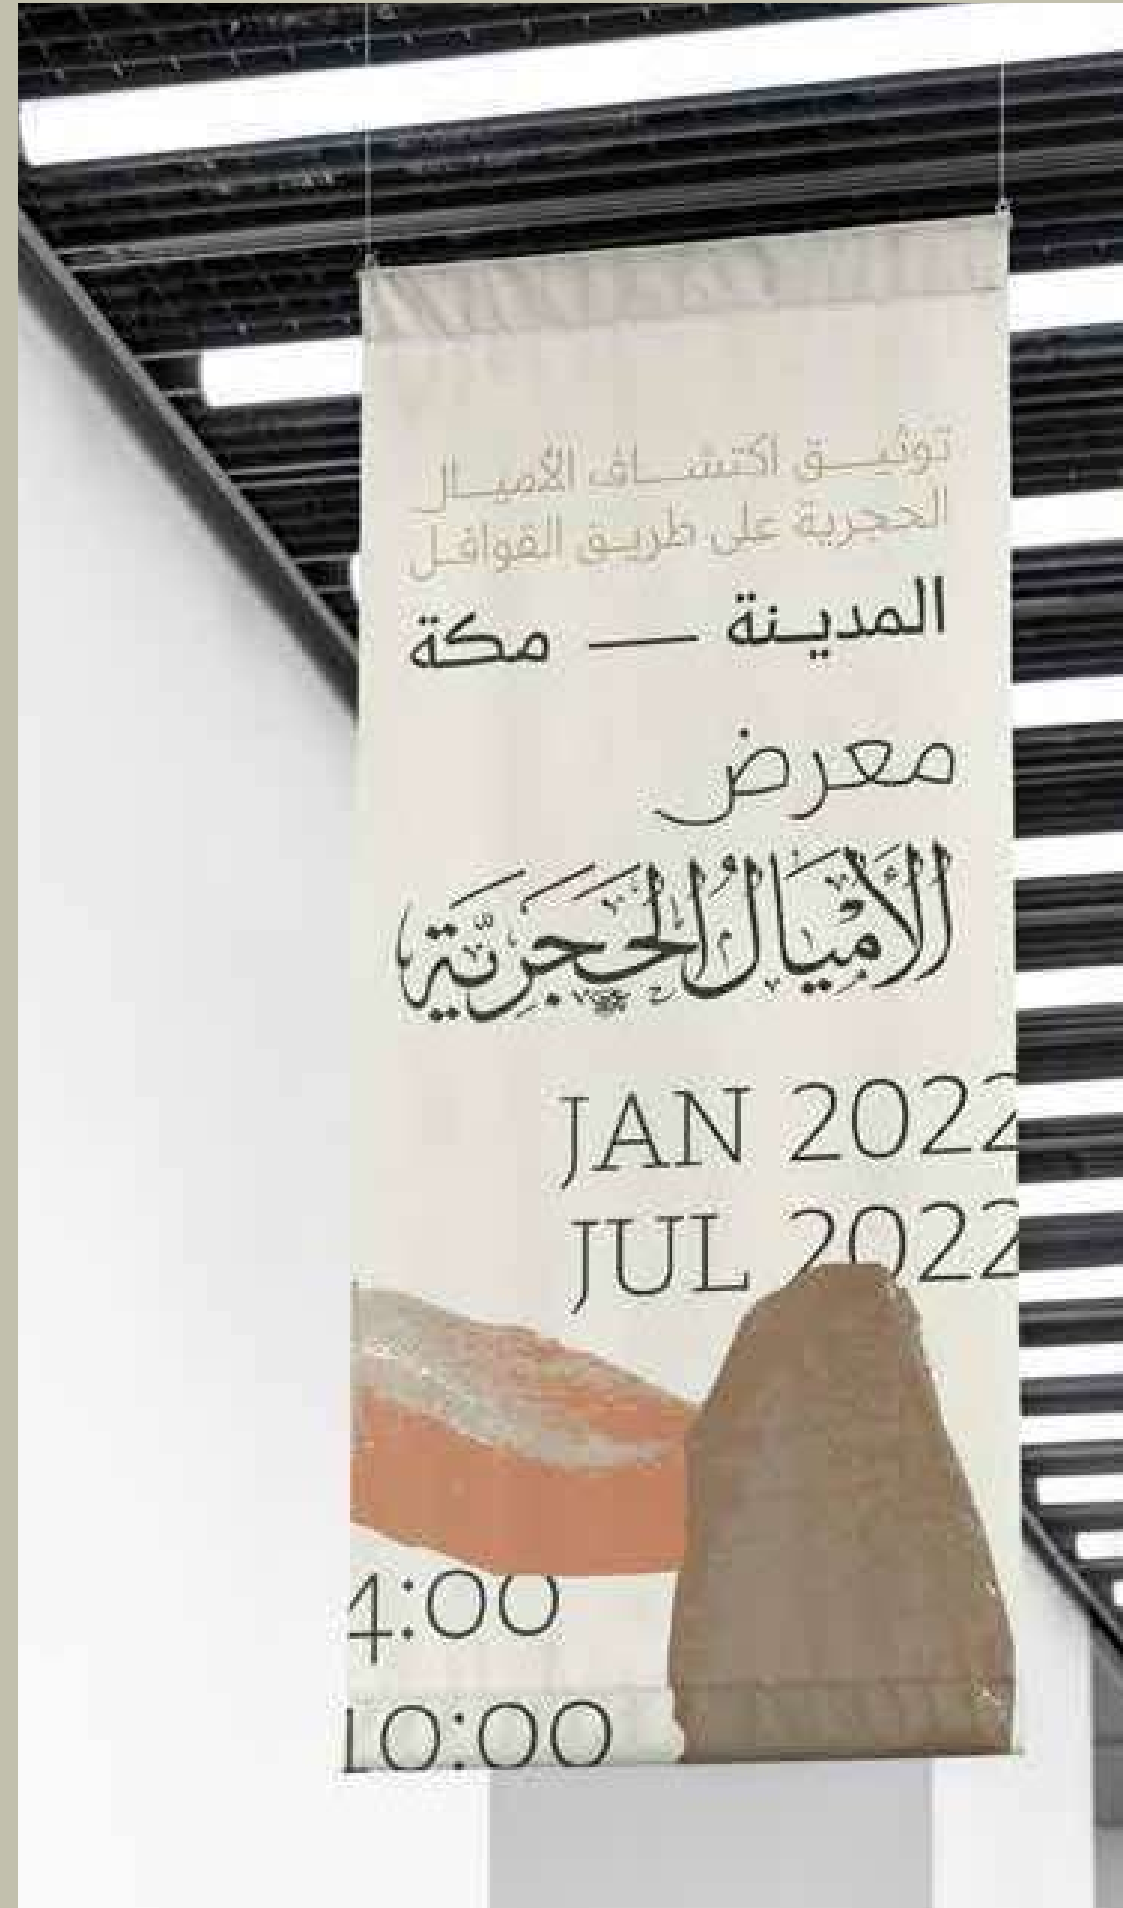 توثيق اكتشاف الأميال
الحجرية على طريق القوافل
المدينة — مكة
معرض
الأميال الحجرية
JAN 2022
JUL 2022
4:00
10:00